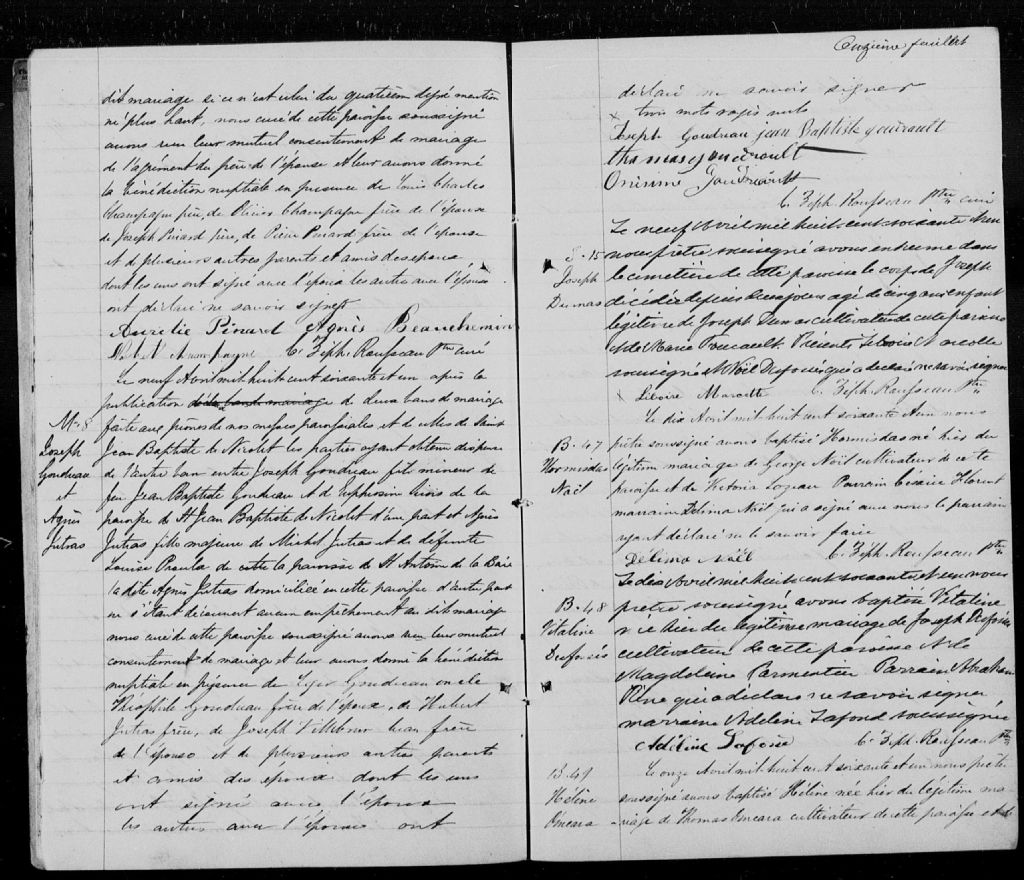 dit mariage si ce n'est celui du quatrieme degré mention
né plus haut, nous curé de cette paroisse soussigné
avons reçu leur mutuel consentement de mariage
de l'agrément du père de l'épouse et leur avons donné
la bénédiction nuptiale en presence de Louis Charles
Champagne père, de Olivier Champagne frère de l'épouse
de Joseph Pinard père, de Pierre Pinard frère de l'épouse
et de plusieurs autres parents et amis des epoux
dont les uns ont signé avec l'époux les autres avec l'épouse
ont déclaré ne savoir signer
Aurelie Pinard Agnès Beauchemin
C. Zéph. Rousseau Ptre curé
Le neuf Avril mil huit cent soixante et un après la
publication de deux bans de mariage
faite aux prones de nos messes paroissiales et de celles de Saint
M. 8
Joseph
Goudreau
et
Agnès
Jutras
Jean Baptiste de Nicolet les parties ayant obtenu dispense
de l'autre ban entre Joseph Goudreau fils mineur de
feu Jean Baptiste Goudreau et d'Euphrosine de la
paroisse de St Jean Baptiste de Nicolet d'une part et Agnès
Jutras fille majeure de Michel Jutras et de defunte
Louise de cette la paroisse de St Antoine de la Baie
la dite Agnès Jutras domiciliée en cette paroisse d'autre part
ne s'étant découvert aucun empêchement au dit mariage
nous curé de cette paroisse soussigné avons reçu leur mutuel
consentement de mariage et leur avons donné la bénédiction
nuptiale en présence de Goudreau oncle
Théophile Goudreau frère de l'époux, de Hubert
Jutras frère, de Joseph beau frère
de l'épouse et de plusieurs autres parents
et amis des epoux dont les uns
ont signé avec l'époux
les autres avec l'épouse ont
Onzieme feuillet
déclaré ne savoir signer
x trois mots rayés nuls
Joseph Goudreau Jean Baptiste goudrault
thomas goudrault
Onésime Goudrault
C. Zéph. Rousseau Ptre curé
S. 15
Joseph
Dumas
Le neuf Avril mil huit cent soixante et un
nous prêtre soussigné avons enhumé dans
le cimetière de cette paroisse le corps de Joseph
décédé depuis deux jours agé de cinq ans enfant
légitime de Joseph Dumas cultivateur de cette paroisse
et de Marie Present Liboire Marcotte
soussigné et Noël Desfossés qui a declaré ne savoir signer
x Liboire Marcotte C. Zéph. Rousseau Ptre
B. 47
Hormisdas
Noël
Le dix Avril mil huit cent soixante et un nous
prêtre soussigné avons baptisé Hormisdas né hier du
légitime mariage de George Noël cultivateur de cette
paroisse et de Victoria Lozeau Parrain Césaire Florent
marraine Zélima Noël qui a signé avec nous le parrain
ayant déclaré ne le savoir faire
Zélima Noël C. Zéph. Rousseau Ptre
B. 48
Vitaline
Desfossés
Le dix Avril mil huit cent soixante et un nous
prêtre soussigné avons baptisé Vitaline
née hier du légitime mariage de Joseph Desfossés
cultivateur de cette paroisse et de
Magdeleine Parmentier Parrain Abraham
René qui a déclaré ne savoir signer
marraine Adeline Lafond soussignée
Adéline Lafond C. Zéph. Rousseau Ptre
B. 49
Hélène
Omeara
Le onze Avril mil huit cent soixante et un nous prêtre
soussigné avons baptisé Hélène née hier du légitime ma
-riage de Thomas Omeara cultivateur de cette paroisse et de